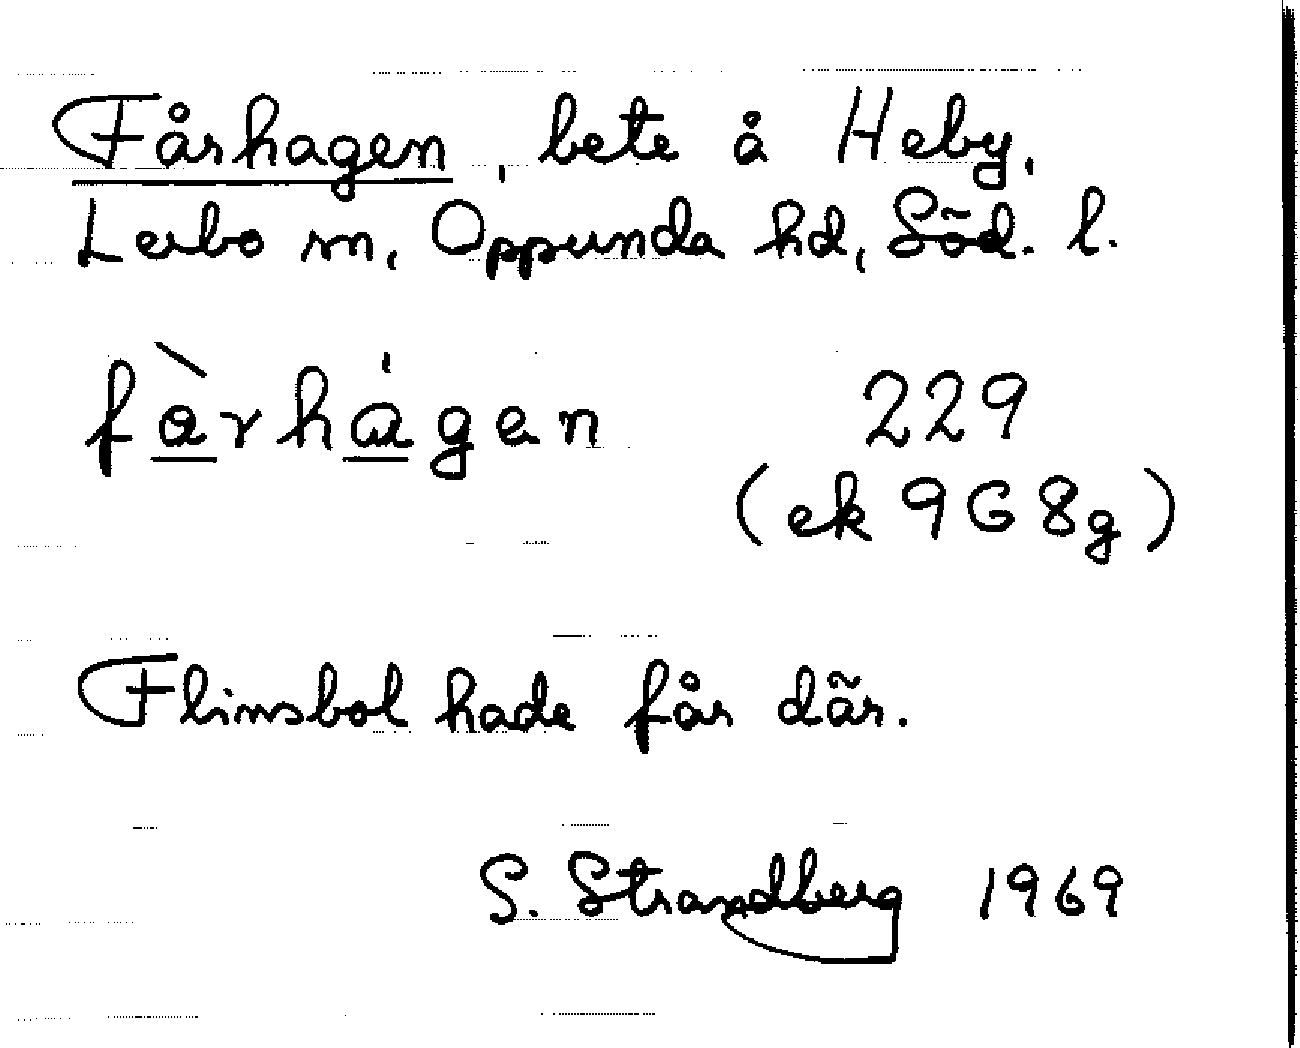 Fårhagen, bete å Heby,
Lerbo sn, Oppunda hd, Söd. l.
fàrhágen 229
(ek 9G 8g)
Flinsbol hade får där.
S. Strandberg 1969